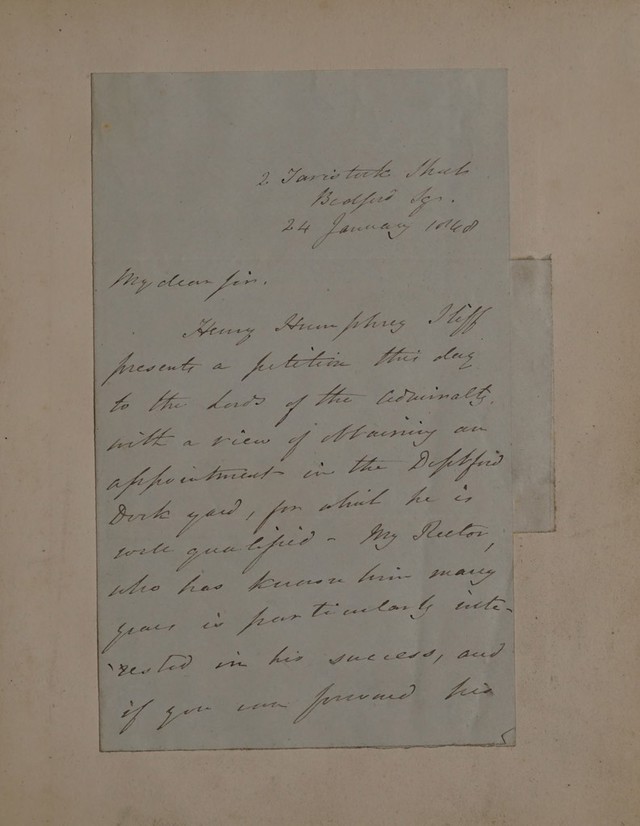 2 Tavistock Street
Bedford Sq.
24 January 1848
My dear Sir.
Henry Humphrey
presents a petition this day
to the Lords of the Admiralty,
with a view of obtaining an
appointment in the Deptford
Dock yard, for which he is
well qualified - My Rector,
who has known him many
years is particularly inte-
rested in his success, and
if you can forward his